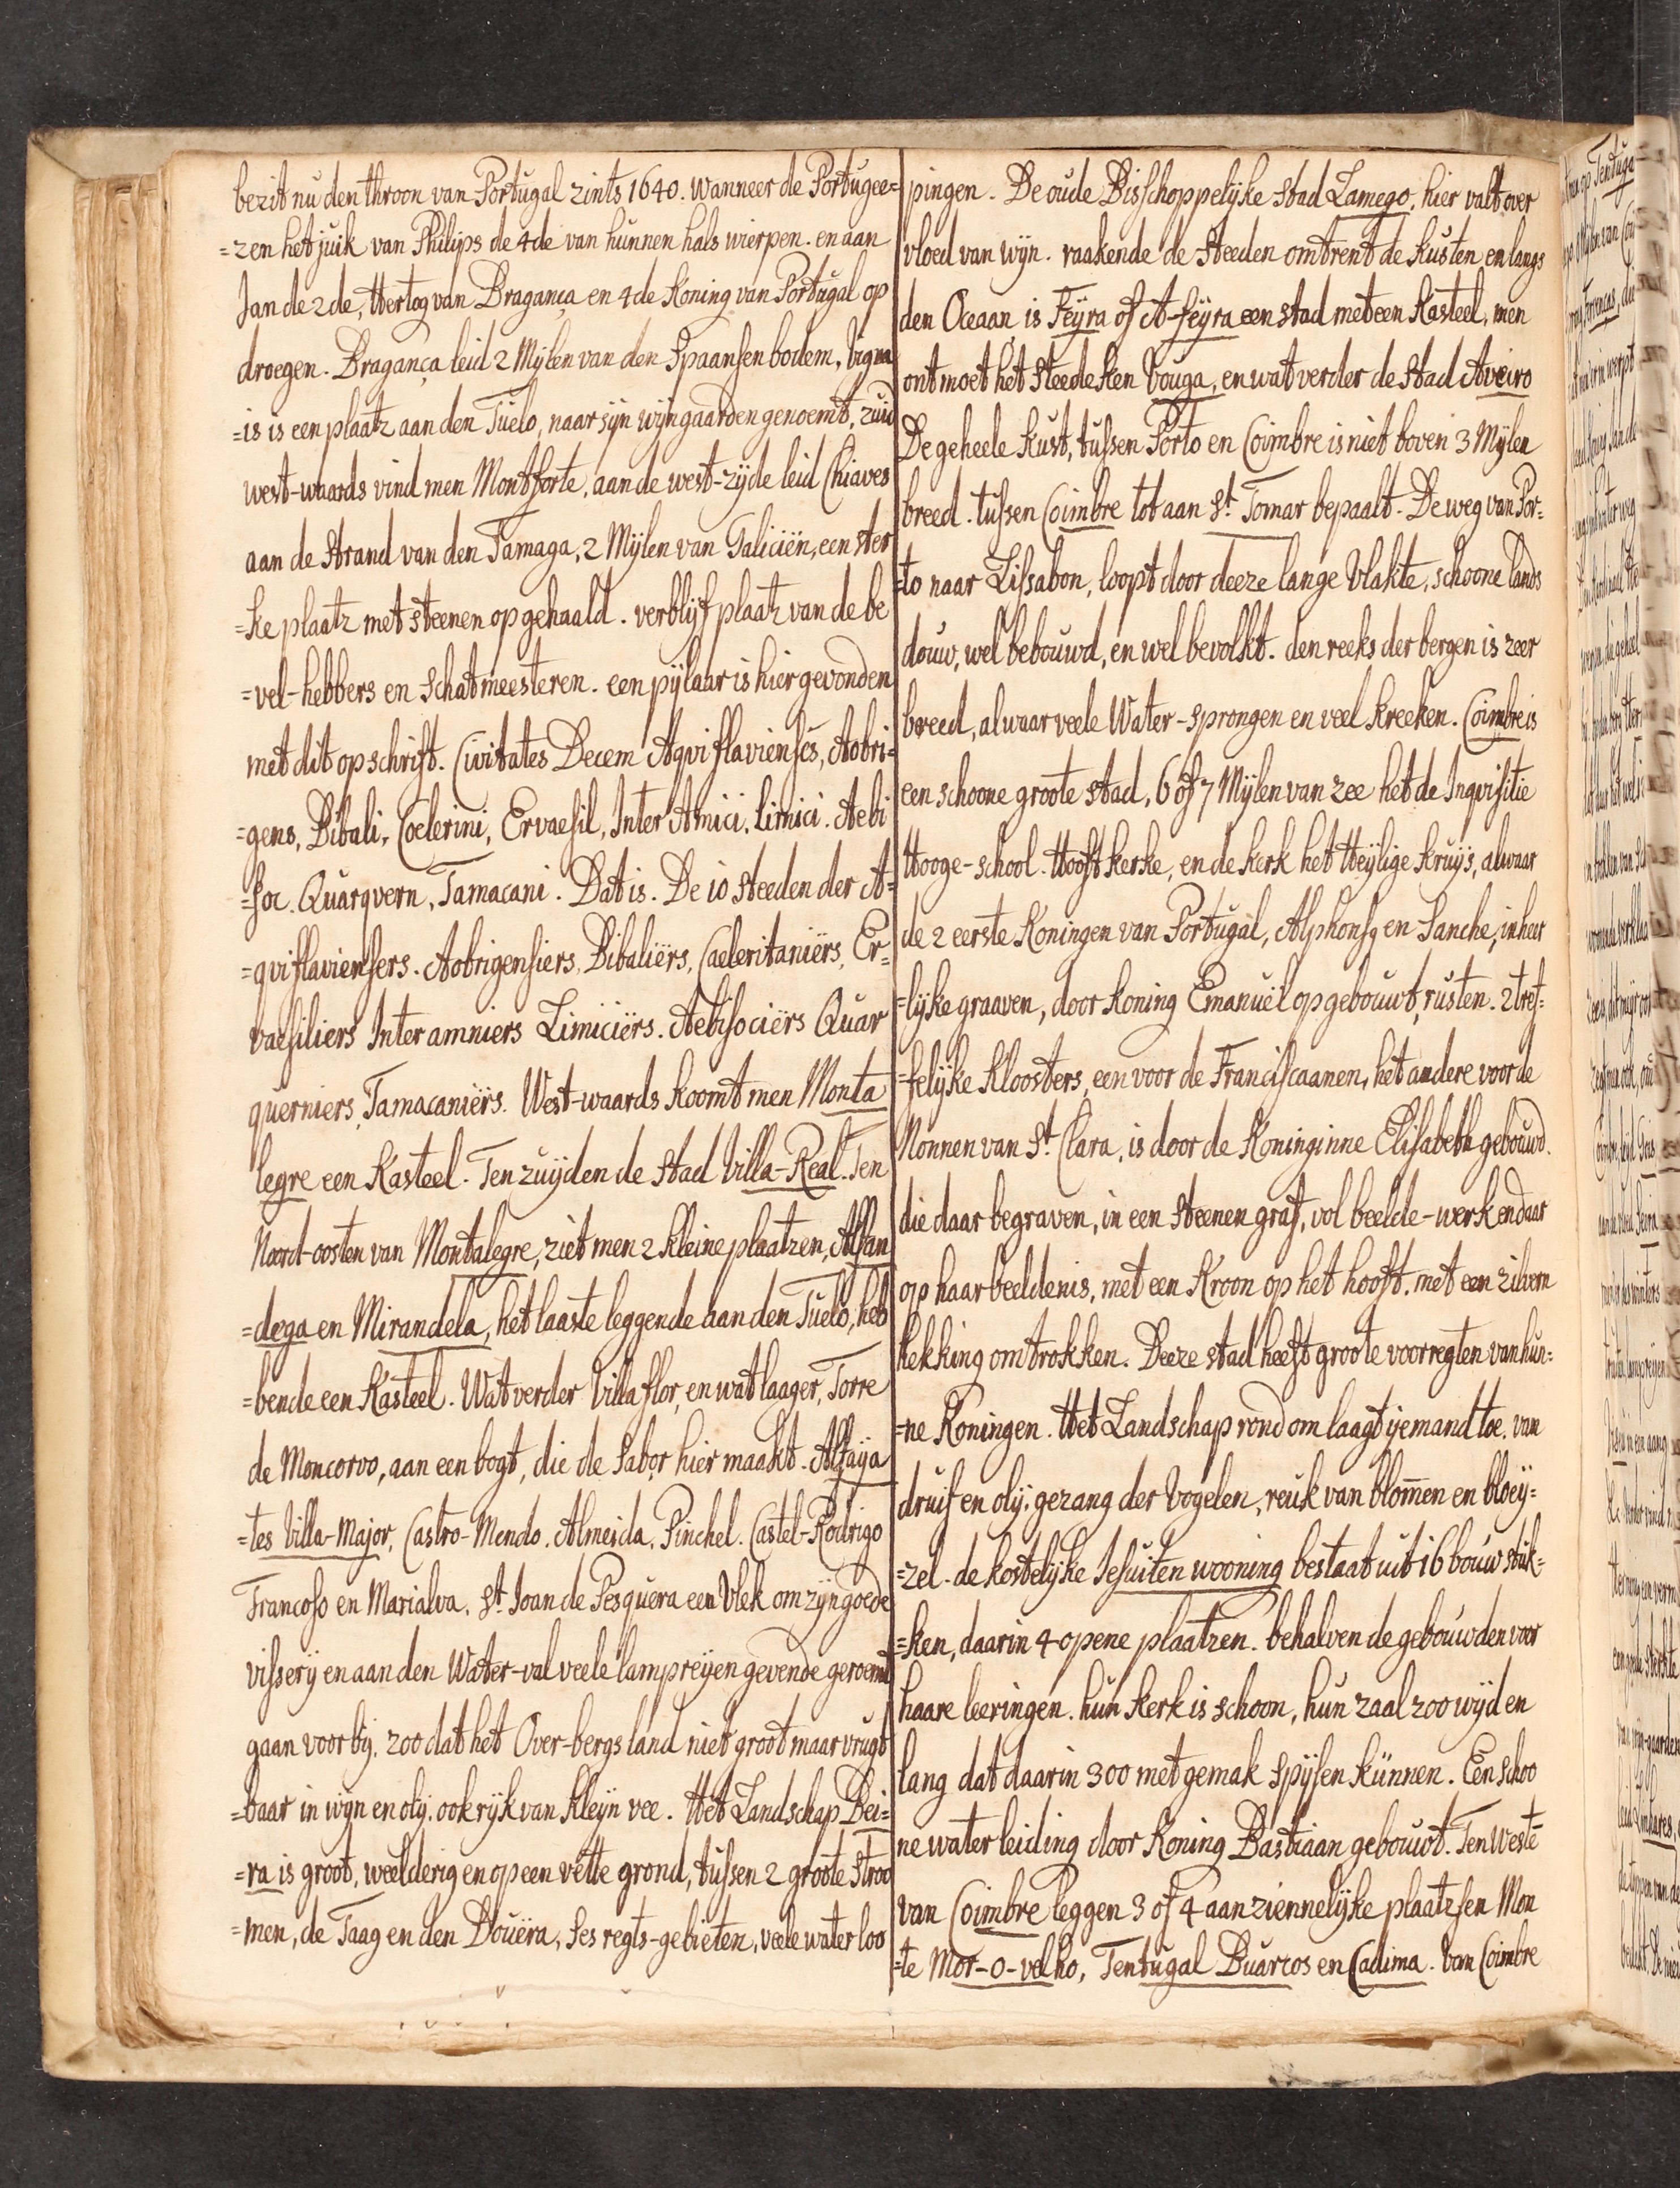 bezit nu den throon van Portugal zints 1640. wanneer de Portugee=
=zen het juik van Philips de 4de van hunnen hals wierpen. en aan
Jan de 2de, Hertog van Bragança en 4de Koning van Portugal op
droegen. Bragança leid 2 Mijlen van den Spaansen bodem, Vigna
=is is een plaatz aan den Tuelo, naar sijn wijngaarden genoemt, zuid
west-waards vind men Montforte, aan de west-zijde leid Chiaves
aan de strand van den Tamaga, 2 Mijlen van Galiciën, een ster
=ke plaatz met steenen opgehaald. verblijf plaatz van de be
=vel-hebbers en schatmeesteren. een pijlaar is hier gevonden
met dit opschrift. Civitates Decem Aqviflavienses, Aobri=
=gens, Bibali, Coelerini, Ervaesil, Inter Amici. Limici. Aebi
=soc. Quarqvern, Tamacani. Dat is. De 10 steeden der A=
=qviflaviensers. Aobrigensiers, Bibaliërs, Caeleritaniërs, Er=
vaesiliers Inter amniers Limiciërs. Aebisociërs Quar
querniers, Tamacaniërs. West-waards koomt men Monta
legre een Kasteel. Ten zuijden de stad Villa-Real. Ten
Noord-oosten van Montalegre, ziet men 2 kleine plaatzen, Alfan
=dega en Mirandela, het laaste leggende aan den Tuelo, heb
=bende een Kasteel. Wat verder Villaflor, en wat laager, Torre
de Moncorvo, aan een bogt, die de Sabor hier maakt. Alfaija
=tes Villa-Major, Castro-Mendo. Almeida. Pinchel. Castel-Rodrigo
Francoso en Marialva. St. Joan de Pesquera een Vlek om zijn goede
visserij en aan den Water-val veele lampreijen gevende geroemt
gaan voor bij. zoo dat het Over-bergs land niet groot maar vrugt
=baar in wijn en olij. ook rijk van kleijn vee. Het Landschap Bei=
=ra is groot, weelderig en op een vette grond, tussen 2 groote Stroo
=men, de Taag en den Douëra, ses regts-gebieten, veele water loo
pingen. De oude Bisschoppelijke stad Lamego, hier valt over
vloed van wijn. raakende de steeden omtrent de kusten en langs
den Oceaan, is Feijra of A-feijra een stad met een Kasteel, men
ontmoet het steedeken Vouga, en wat verder de stad Aveiro
De geheele kust, tussen Porto en Coimbre is niet boven 3 Mijlen
breed. tussen Coimbre tot aan St. Tomar bepaalt. De weg van Por=
=to naar Lissabon, loopt door deeze lange Vlakte, schoone lands
douw, wel bebouwd, en wel bevolkt. den reeks der bergen is zeer
breed, alwaar veele Water-sprongen en veel kreeken. Coimbre is
een schoone groote stad, 6 of 7 Mijlen van zee het de Inqvisitie
Hooge-school. Hooft kerke, en de kerk het Heijlige Kruijs, alwaar
de 2 eerste Koningen van Portugal, Alphons, en Sanche, in heer
=lijke graaven, door Koning Emanuël opgebouwt, rusten. 2 tref=
=felijke Kloosters, een voor de Franciscaanen, het andere voor de
Nonnen van St. Clara, is door de Koninginne Elisabeth gebouwd.
die daar begraven, in een steenen graf, vol beelde-werk en daar
op haar beeldenis, met een Kroon op het hooft. met een zilvern
hekking omtrokken. Deeze stad heeft groote voorregten van hun=
=ne Koningen. Het Landschap rond om laagt ijemand toe. van
druif en olij. gezang der Vogelen, reuk van blom̄en en bloeij=
=zel. de kostelijke Jesuiten wooning bestaat uit 16 bouw stuk=
=ken, daarin 4 opene plaatzen. behalven de gebouwden voor
haare leeringen. hun kerk is schoon, hun zaal zoo wijd en
lang dat daarin 300 met gemak spijsen künnen. Een schoo
ne water leiding door Koning Bastiaan gebouwt. Ten weste̅
van Coimbre leggen 3 of 4 aanziennelijke plaatzsen Mon
=te Mor-o-velho, Tentugal Buarcos en Cadima. Van Coimbre